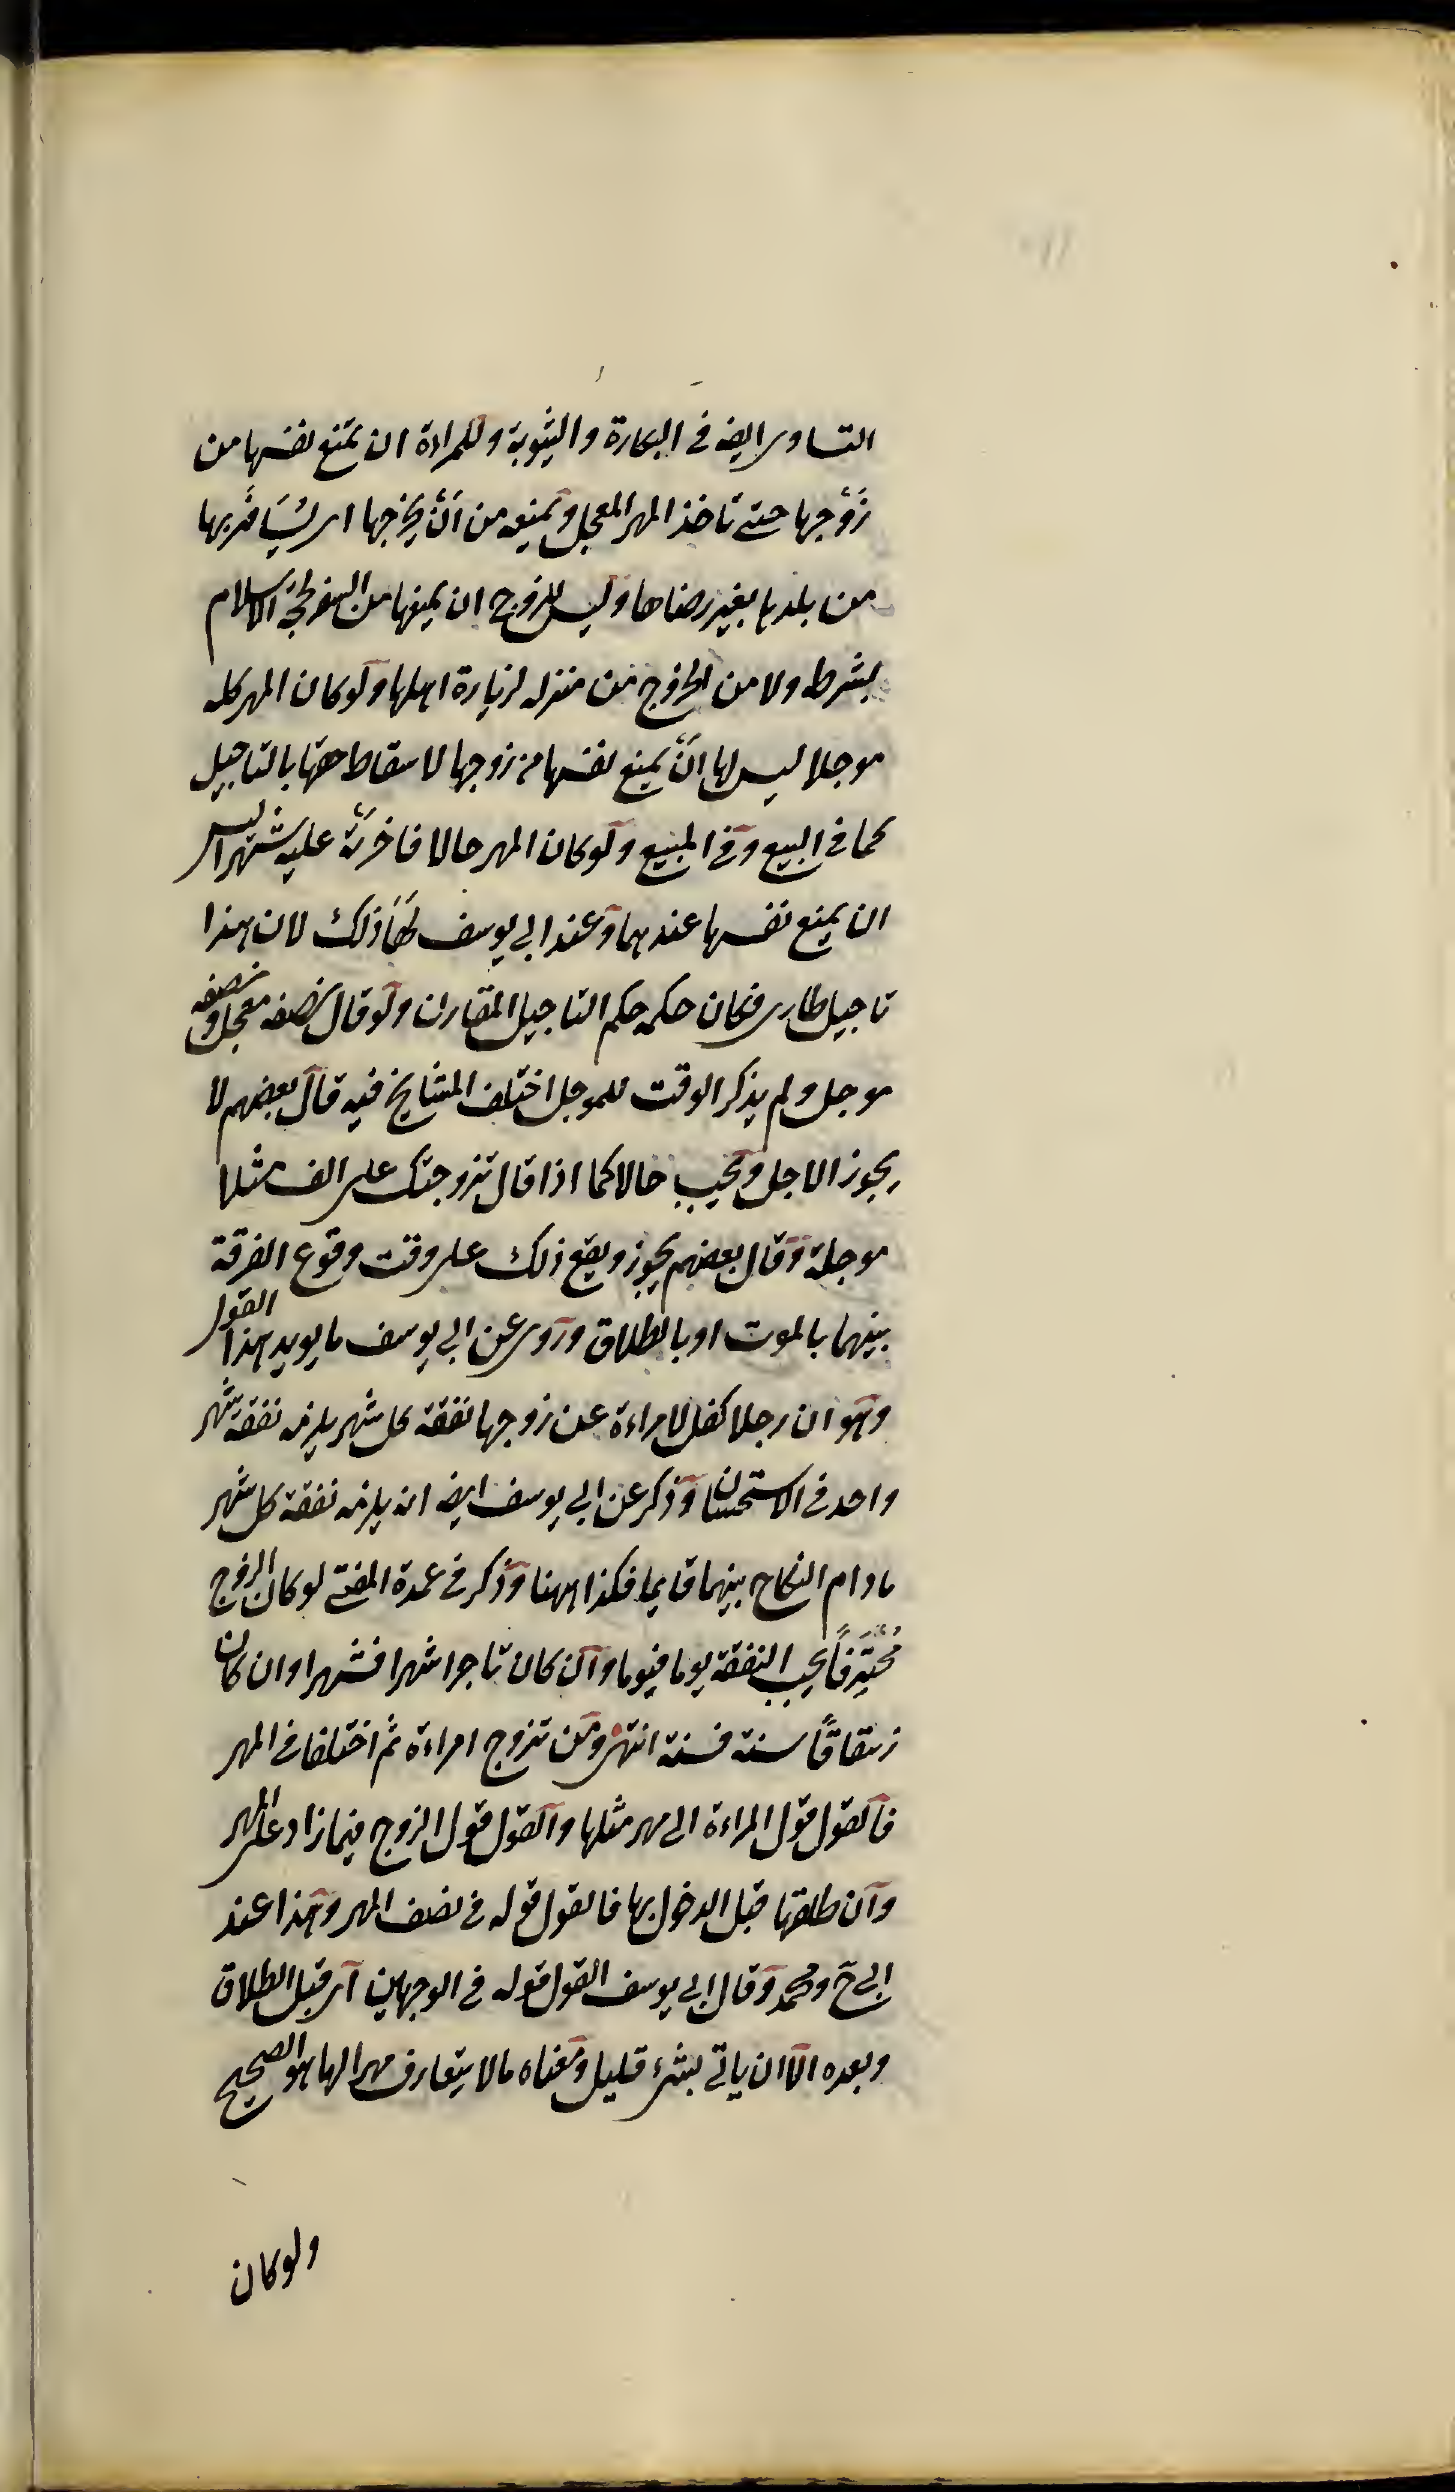 التساوى ايضه فى البكارة والثيوبة وللمراءة ان تمنع نفسها من
زَوْجها حتے تاخذ المهر المعجل وتمنعه من اَنْ يخرجها اى يُسَافَر بها
من بلدها بغير رضاها وليس للزوج ان يمنعها من السفر لحجة الاسلام
بشرط ولا من الخروج من منزله لزيارة اهلها ولو كان المهر كله
موجلا ليس لها اَنْ يمنع نفسها من زوجها لاسقاط حقها بالتاجيل
كما فى البيع وفى المبيع ولو كان المهر حالا فاخرتْهُ عليه شهرا ليس
ان يمنع نفسها عندهما وعند ابى يوسف لَهَا ذلك لان هذا
تاجيل طارى فكان حكمه حكم التاجيل المقارن ولو قال نصفه معجل ونصفه
موجل ولم يذكر الوقت للموجل اختلف المشايخ فيه قال بعضهم لا
يجوز الاجل ويجب حالا كما اذا قال تزوجتك على الف مثلا
موجلة وقال بعضهم يجوز ويقع ذلك على وقت وقوع الفرقة
بينهما بالموت او بالطلاق وروى عن ابى يوسف ما يويد هذا القول
وهو ان رجلا كفل لامراءة عن زوجها نفقة كل شهر يلزمه نفقة شهر
واحد فى الاستحسان وذكر عن ابى يوسف ايضه انه يلزمه نفقة كل شهر
مادام النكاح بينهما قايما فكذا ههنا وذكر فى عمدة المفتے لو كان الزوج
مُحْتَرِفًا يجب النفقة يوما فيوما وان كان تاجرا شهرا فشهرا وان كان
زستقاقًا سنة فسنة انتهى ومن تزوج امراءة ثم اختلفا فى المهر
فالقول قول المراءة الى مهر مثلها والقول قول الزوج فيما زاد على المهر
وان طلقها قبل الدخول بها فالقول قوله فى نصف المهر وهذا عند
ابى ح ومحمد وقال ابى يوسف القول قوله فى الوجهين اى قبل الطلاق
وبعده الا ان ياتى بشئ قليل ومعناه مالا يتعارف مهرا لها هو الصحيح
ولو كان